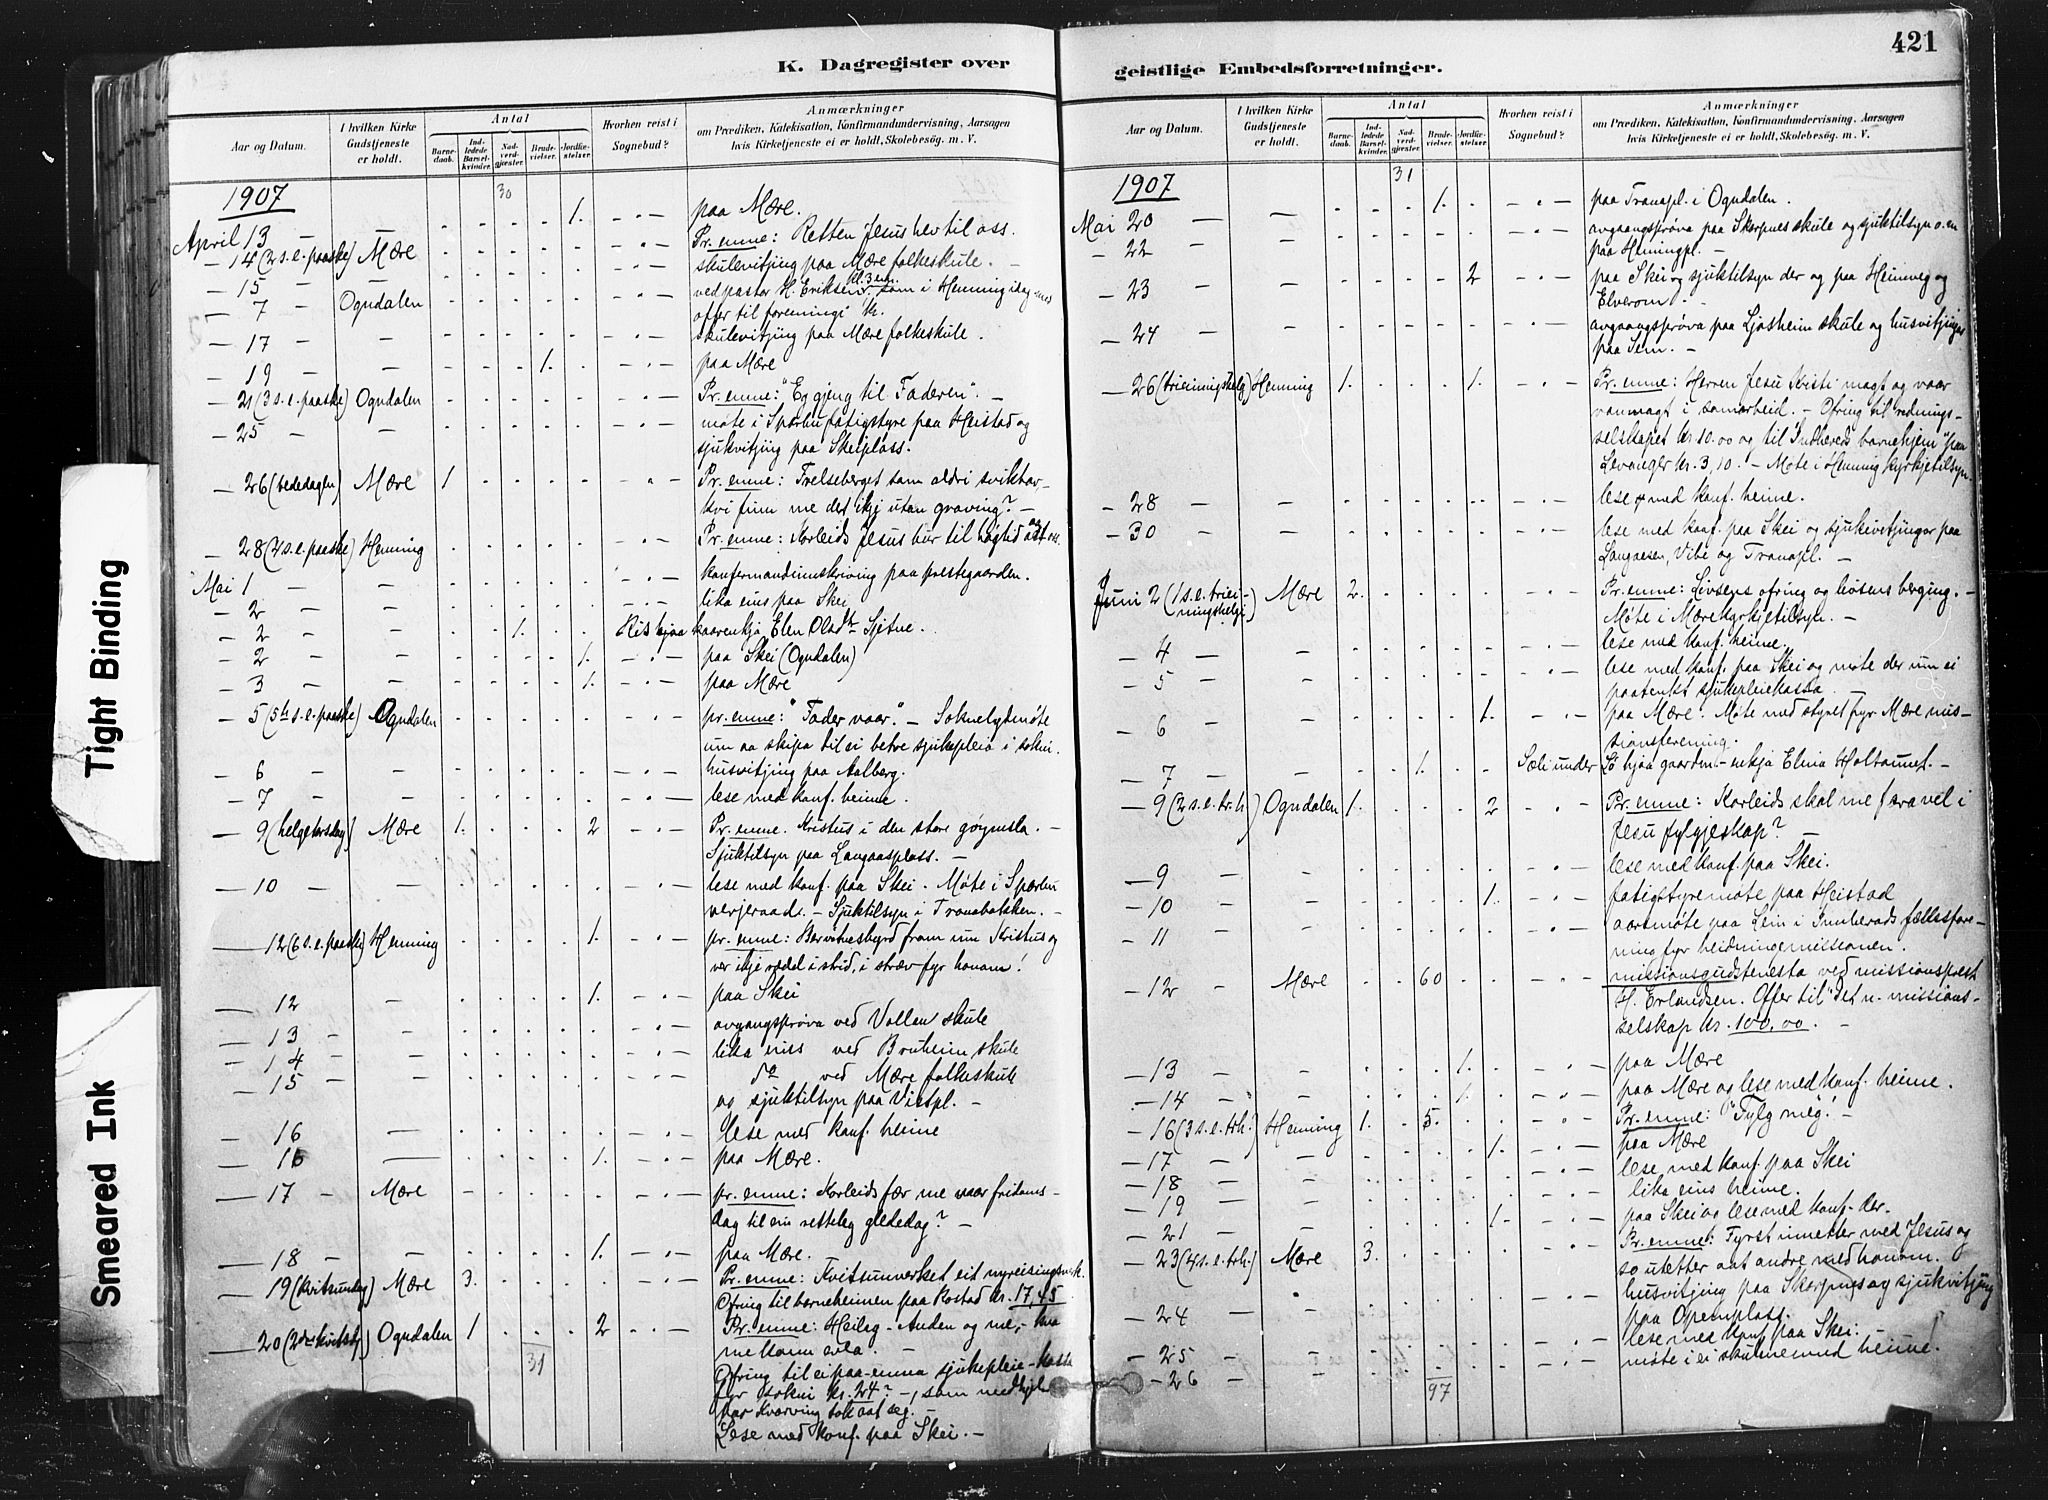 421
K. Dagregister over
geistlige Embedsforretninger.
Tight Binding
Smeared Ink
Aar og Datum.
I hvilken Kirke Gudstjeneste er holdt.
Antal
Barnedaab.
Indledede Barselkvinder.
Nadverdgjester
Brudevielser.
Jordfæstelser.
Hvorhen reist i Sognebud?
Anmærkninger
om Prædiken, Katekisation, Konfirmandundervisning, Aarsagen
hvis Kirketjeneste ei er holdt, Skolebesøg. m. V.
1907 30
April 13 1. paa Mære.
— 14 (2 s.e. paaske) Mære Pr. emne: Retten Jesus hev til oss.
— 15 — — skulevitjing paa Mære folkeskule. —
— 7 — Ogndalen ved pastor H. Eriksen kl. 3 em. som i Henning idag med
ofer til foreningi kr.
— 17 — — skulevitjing paa Mære folkeskule.
— 19 — — 1. paa Mære
— 21 (3 s.e. paaske) Ogndalen Pr. emne: "Eg gjeng til Faderen". —
— 25 — — møte i Sparbu fatigstyre paa Heistad og
sjukvitjing paa Skeiplass.
— 26 (bededagen) Mære 1 Pr. emne: Frelseberget som aldri sviktar —
kvi finn me det ikje utan graving? —
— 28 (4 s.e. paaske) Henning Pr. emne: Korleids Jesus bur til høgtid aat oss.
Mai 1 — — konfermandinnskriving paa prestegaarden.
— 2 — — lika eins paa Skei
— 2 — — 1. Ris hjaa kaarenkja Elen Olsdtr. Sjetne.
— 2 — — 1. paa Skei (Ogndalen)
— 3 — — 1. paa Mære
— 5 (5te s.e. paaske) Ogndalen pr. emne: "Fader vaar". — Soknelydmøte
um aa skipa til ei betre sjukepleia i sokni.
— 6 — — husvitjing paa Aalberg.
— 7 — — lese med konf. heime.
— 9 (helgetorsdag) Mære 1. 2 Pr. emne. Kristus i den store gøymsla. —
Sjuktilsyn paa Langaasplass. —
— 10 — — lese med konf. paa Skei. Møte i Sparbu
verjeraad. — Sjuktilsyn i Tranabakken. —
— 12 (6 s.e. paaske) Henning 1. pr. emne: Ber vitnesbyrd fram um Kristus og
ver ikje rædd i strid, i stræv fyr honom!
— 12 — 1. paa Skei
— 13 — — avgangsprøva ved Vollan skule
— 14 — — lika eins ved Bruheim skule
— 15 — — do ved Mære folkeskule
og sjuktilsyn paa Vistpl. —
— 16 — lese med konf. heime
— 16 — 1. paa Mære.
— 17 — Mære pr. emne: Korleids fær me vaar fridoms-
dag til ein retteleg gledesdag? —
— 18 — — 1. paa Mære.
— 19 (kvitsundag) Mære 3. Pr. emne: Kvitsunverket eit nyreisingsverk.
Ofring til barneheimen paa Rostad kr. 17,45
— 20 (2dn kvitsøn) Ogndalen 1 2 Pr. emne: Heilag-Anden og me, —
31
Ofring til ei paa-emna sjukepleie-kasse
fyr sokni kr. 24? —, som
Kvarving tok aat seg. —
Lese med konf. paa Skei. —
Aar og Datum.
I hvilken Kirke Gudstjeneste er holdt.
Antal
Barnedaab.
Indledede Barselkvinder.
Nadverdgjester
Brudevielser.
Jordfæstelser.
Hvorhen reist i Sognebud?
Anmærkninger
om Prædiken, Katekisation, Konfirmandundervisning, Aarsagen
hvis Kirketjeneste ei er holdt, Skolebesøg. m. V.
1907 31
Mai 20 — — 1. paa Tranapl. i Ogndalen.
— 22 — avgangsprøva paa Skarpnes skule og sjuktilsyn o.m
paa Henningpl. —
— 23 — — 2 paa Skei og sjuktilsyn der og paa Heimveg og
Elverom.
— 24 — — avgangsprøva paa Ljosheim skule og husvitjingar
paa Sem. —
— 26 (trieiningshelg) Henning 1. 1. Pr. emne: Herren Jesu Kristi magt og vaar
vanmagt i samarbeid. — Ofring til rednings-
selskapet kr. 10.00 og til "Indhereds barnehjem" paa
Levanger kr. 3,10. — Møte i Henning kyrkjetilsyn.
— 28 — — lese med konf. heime.
— 30 — — lese med konf. paa Skei og sjukevitjingar paa
Langaasen, Vibe og Tranapl. —
Juni 2 (1 s.e. triei-ningshelgi) Mære 2. Pr. emne: Livsens ofring og livsens berging. —
Møte i Mære kyrkjetilsyn. —
— 4 — — lese med konf. heime.
— 5 — — lese med konf. paa Skei og møte der um ei
paatenkt sjukepleiekassa.
— 6 — 1. paa Mære. Møte med styret fyr Mære mis-
sionsforening.
— 7 — — 1. Sæli under Lø hjaa gaardm.-enkja Elina Holtaunet. —
— 9 (2 s.e. tr.h.) Ogndalen 1. 2 Pr. emne: Korleids skal me fara vel i
Jesu fylgjeskap? —
— 9 — — lese med konf. paa Skei.
— 10 — — 1. fatigstyremøte paa Heistad
— 11 — — aarsmøte paa Lein i Innherads fællesfore-
ning fyr heidningemissionen.
— 12 — Mære 60 missionsgudstenesta ved missionsprest
H. Erlandsen. Offer til det n. missions-
selskap kr. 100,00. —
— 13 — — 1. paa Mære
— 14 — — 1. paa Mære og lese med konf. heime.
— 16 (3 s.e. tr.h.) Henning 1. 5. Pr. emne: "Fylg meg!" —
— 17 — — 1. paa Mære
— 18 — — lese med konf. paa Skei
— 19 — — lika eins heime.
— 21 — — 1. paa Skei og lese med konf. der.
— 23 (4 s.e. tr.h.) Mære 3. Pr. emne: Fyrst innetter med Jesus og
so utetter aat andre med honom.
— 24 — — husvitjing paa Skarpnes og sjukvitjing
paa Opemplass.
— 25 — — lese med konf. paa Skei.
— 26 — — møte i ei skulnemnd heime.
97